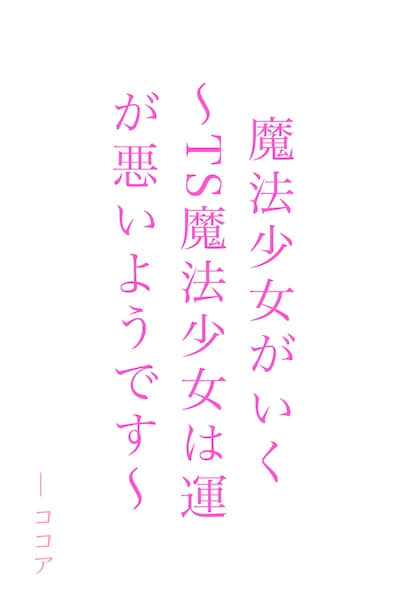 魔法少女がいく
～TS魔法少女は運
が悪いようです～
― ココア